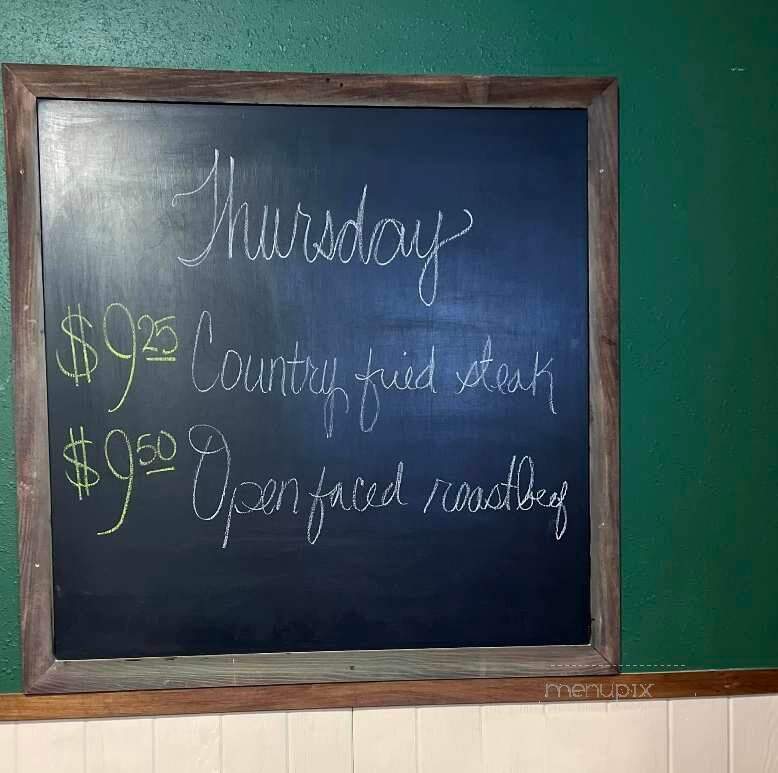 Thursday
$9.25 Country fried steak
$9.50 Open faced roastbeef
menupix